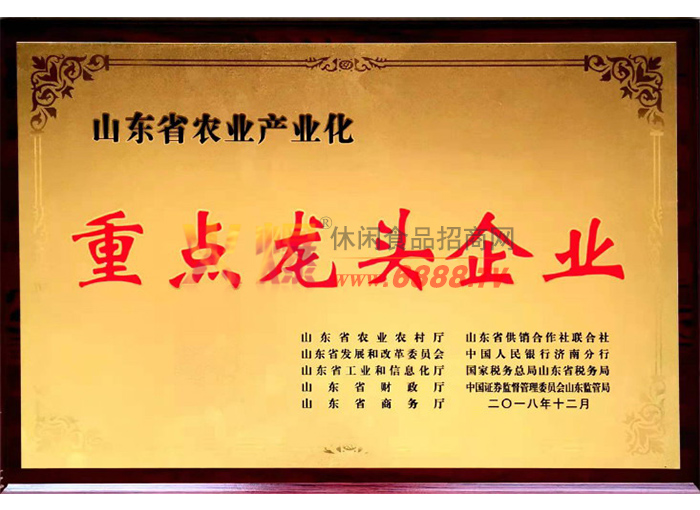 山东省农业产业化
重点龙头企业
®
休闲食品招商网
www.6888.tv
山东省农业农村厅
山东省发展和改革委员会
山东省工业和信息化厅
山东省财政厅
山东省商务厅
山东省供销合作社联合社
中国人民银行济南分行
国家税务总局山东省税务局
中国证券监督管理委员会山东监管局
二〇一八年十二月